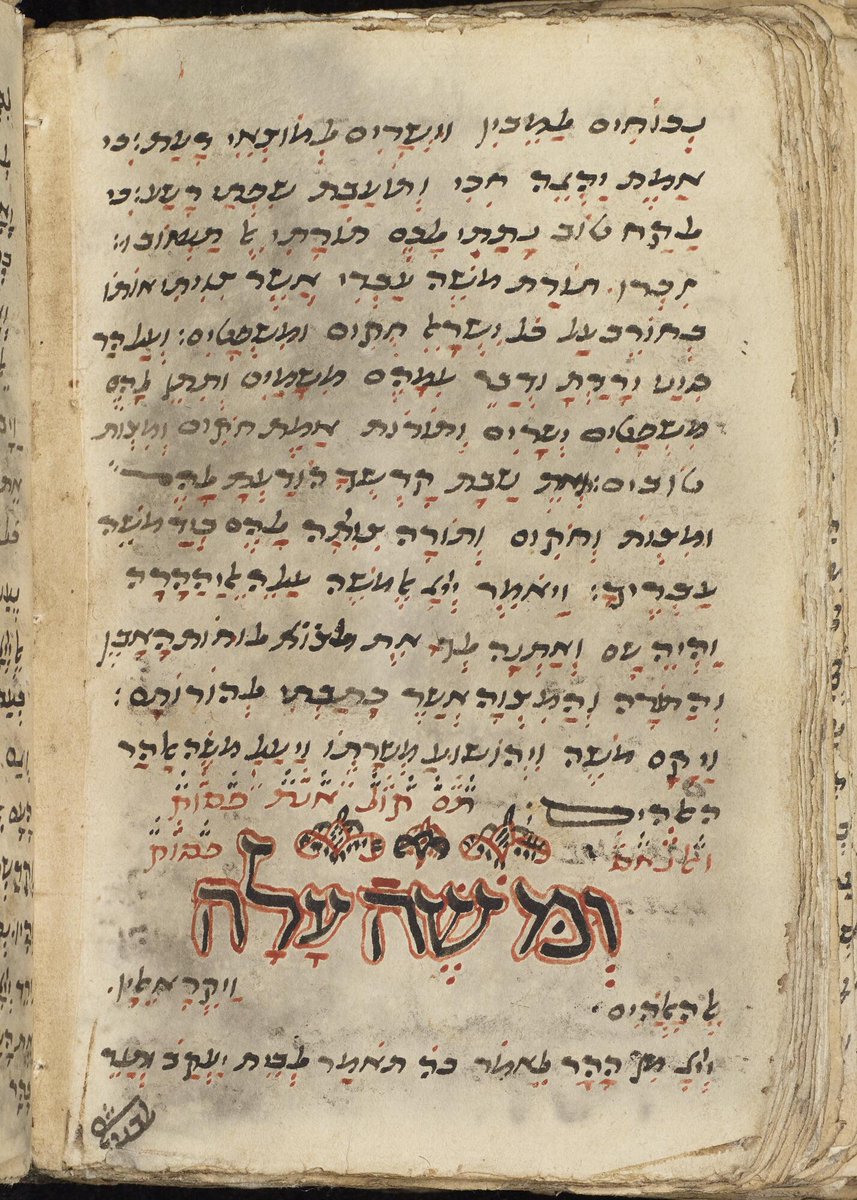 נכוחים למבין וישרים למוצאי דעת: כי
אמת יהגה חכי ותועבת שפתי רשע: כי
לקח טוב נתתי לכם תורתי אל תעזובו:
זכרו תורת משה עבדי אשר צויתי אותו
בחורב על כל ישראל חקים ומשפטים: ועל הר
סיני ירדת ודבר עמהם משמים ותתן להם
משפטים ישרים ותורות אמת חקים ומצות
טובים: ואת שבת קדשך הודעת להם
ומצות וחקים ותורה צויתה להם ביד משה
עבדיך: ויאמר ייי אל משה עלה אלי ההרה
והיה שם ואתנה לך את לוחות האבן
והתורה והמצוה אשר כתבתי להורותם:
ויקם משה ויהושוע משרתו ויעל משה אל הר
האלהים:
ומשה עלה
אל האלהים ויקרא אליו
ייי מן ההר לאמר כה תאמר לבית יעקב ותגד
לבני